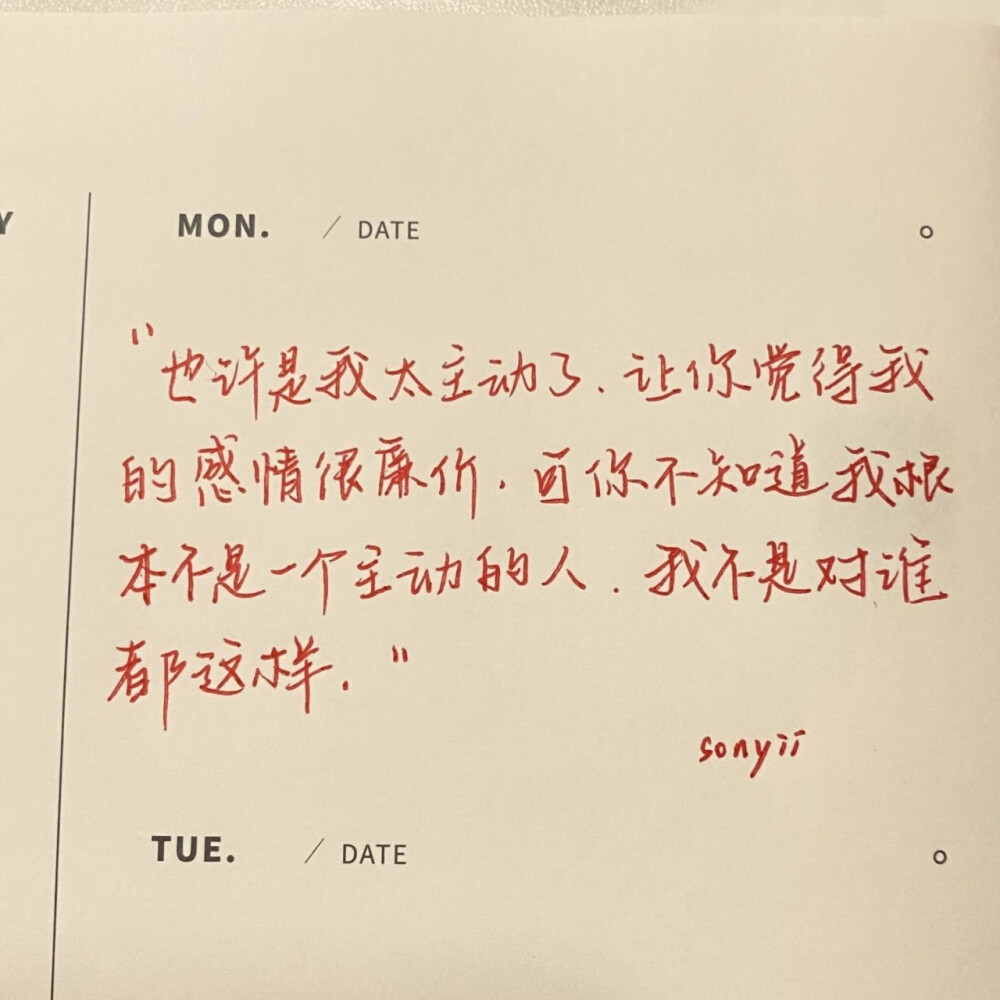 Y
MON. / DATE
"也许是我太主动了.让你觉得我
的感情很廉价.可你不知道我根
本不是一个主动的人.我不是对谁
都这样."
sonyii
TUE. / DATE